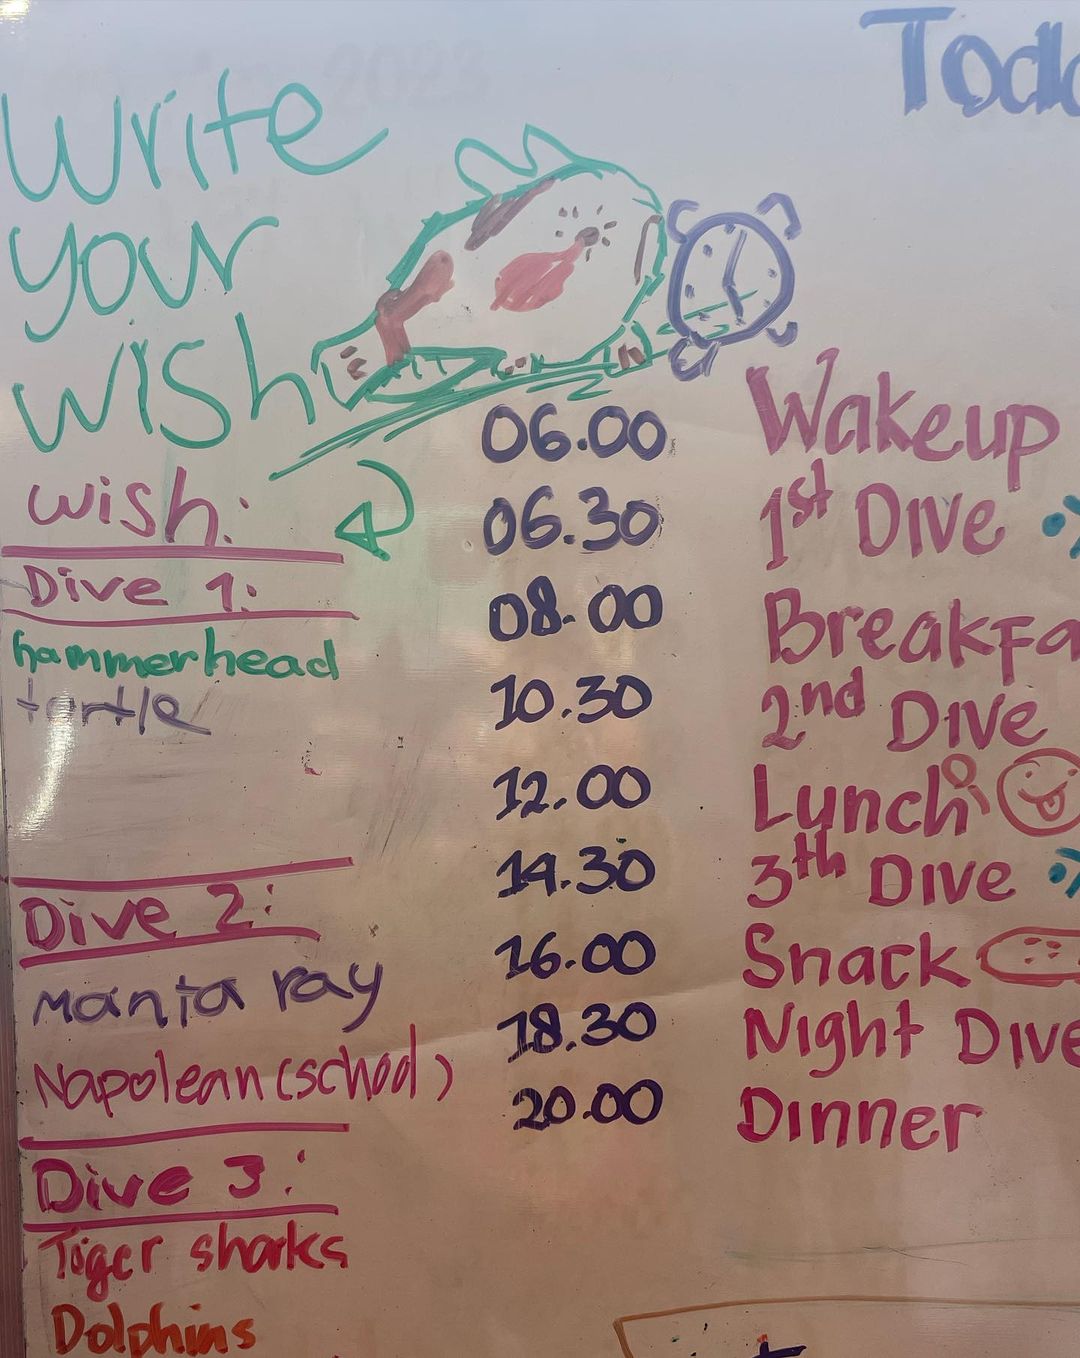 Write
your
wish
wish:
Dive 1:
hammerhead
turtle
Dive 2:
Manta ray
Napolean (school)
Dive 3:
Tiger sharks
Dolphins
Toda
06.00 Wakeup
06.30 1st Dive
08.00 Breakfa
10.30 2nd Dive
12.00 Lunch
14.30 3th Dive
16.00 Snack
18.30 Night Dive
20.00 Dinner